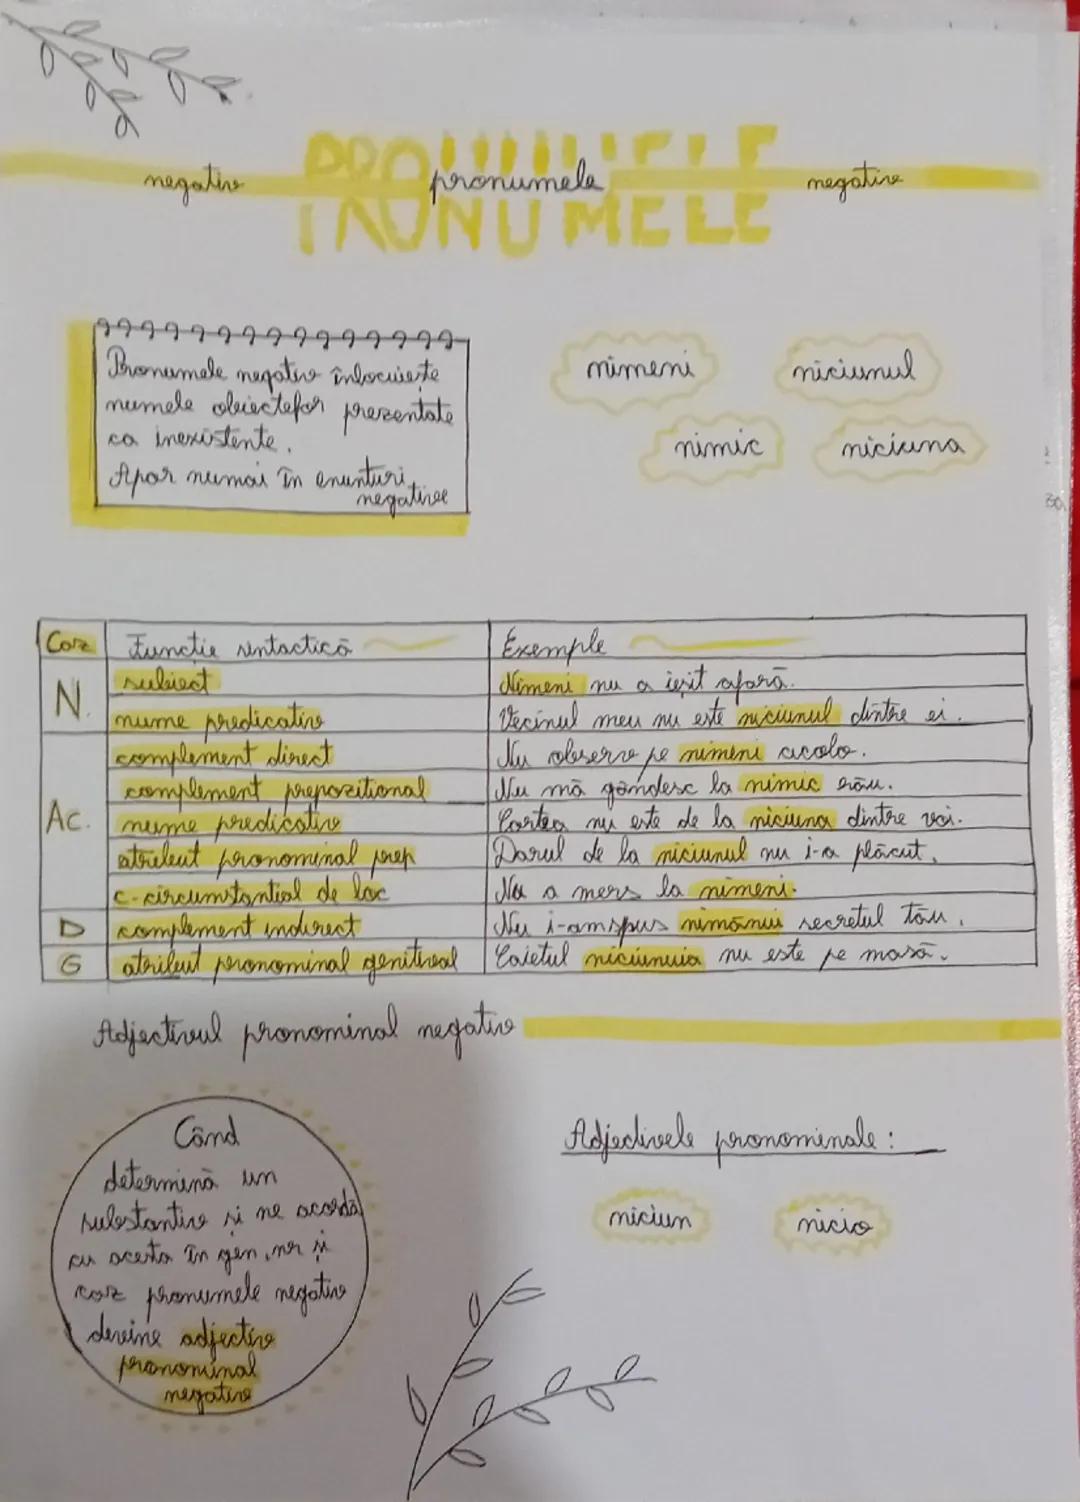 PRONUMELE
negativ pronumele negativ
PRONUMELE
Pronumele negativ înlocuiește
numele obiectelor prezentate
ca inexistente.
Apar numai în enunțuri
negative
nimeni niciunul
nimic niciuna
30
Caz Funcție sintactică Exemple
N. subiect Nimeni nu a ieșit afară.
nume predicativ Vecinul meu nu este niciunul dintre ei.
Ac. complement direct Nu observ pe nimeni acolo.
complement prepozițional Nu mă gândesc la nimic rău.
nume predicativ Cartea nu este de la niciuna dintre voi.
atribut pronominal prep Darul de la niciunul nu i-a plăcut.
c. circumstanțial de loc Nu a mers la nimeni.
D complement indirect Nu i-am spus nimănui secretul tău.
G atribut pronominal genitival Caietul niciunuia nu este pe masă.
Adjectivul pronominal negativ
Când
determină un
substantiv și se acordă
cu acesta în gen, nr și
caz pronumele negativ
devine adjectiv
pronominal
negativ
Adjectivele pronominale:
niciun nicio